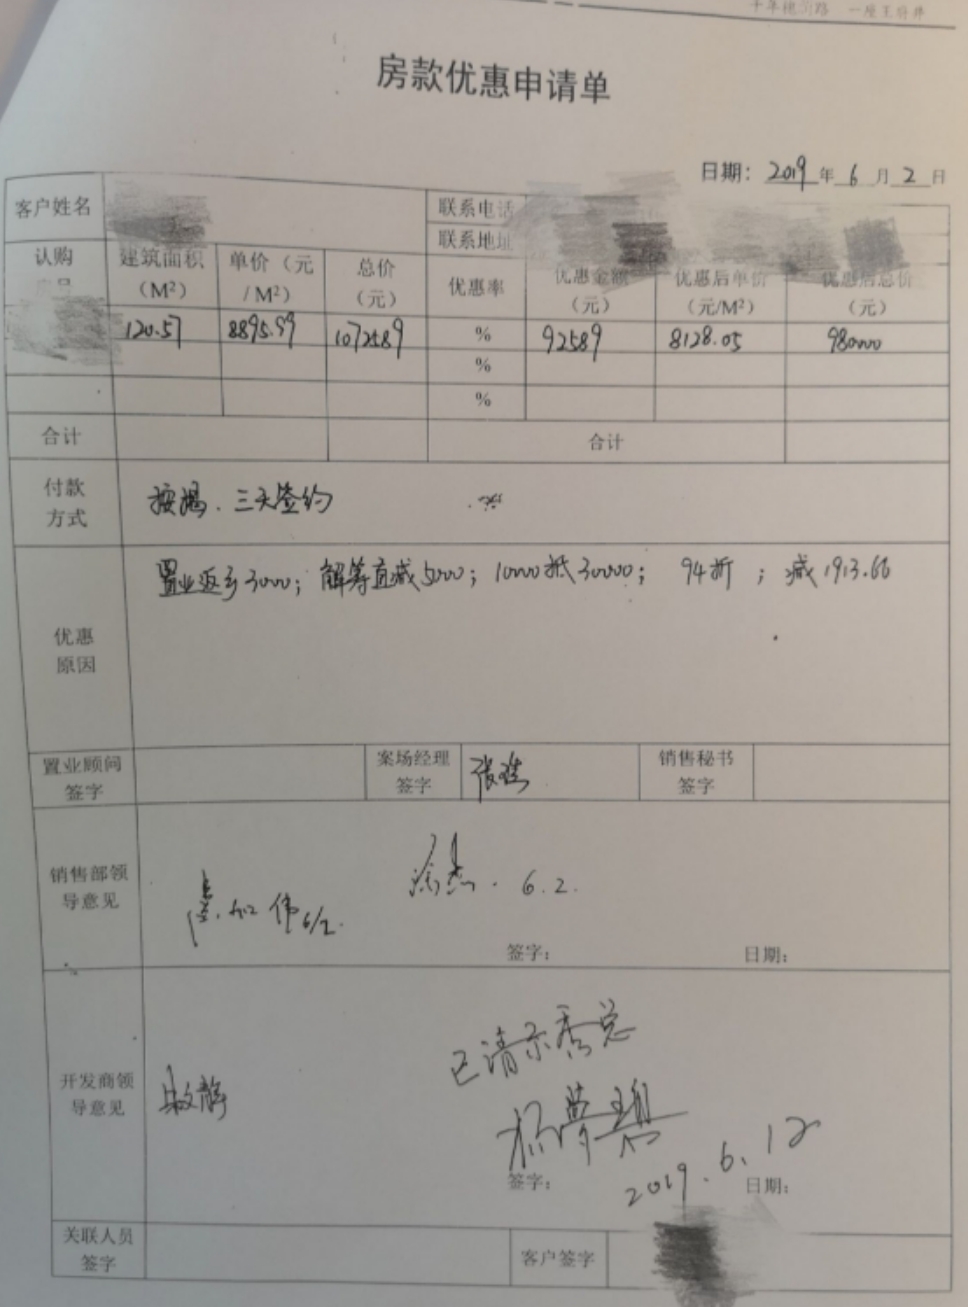 一座王府井
房款优惠申请单
日期：2019年6月2日
客户姓名
联系电话
联系地址
认购
建筑面积（M²）
单价（元/M²）
总价（元）
优惠率
优惠金额（元）
优惠后单价（元/M²）
优惠后总价（元）
120.57 8895.99 1072589 % 92589 8128.05 980000
%
%
合计 合计
付款方式
按揭、三天签约
优惠原因
置业返乡3000；解筹直减5000；10000抵30000；94折；减1913.66
置业顾问签字
案场经理签字
销售秘书签字
销售部领导意见
6/2.
6.2.
签字： 日期：
开发商领导意见
已请示
签字： 日期：
2019.6.12
关联人员签字
客户签字